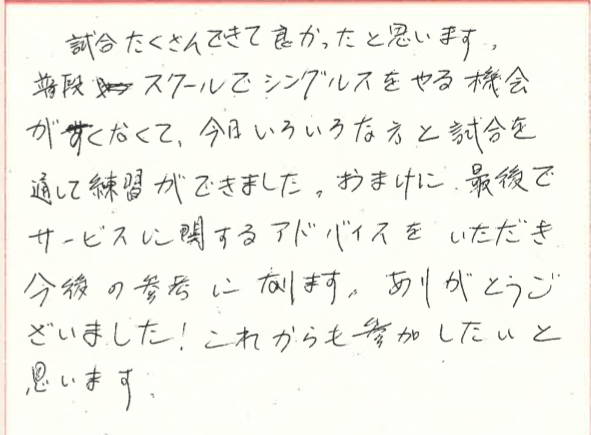 試合たくさんできて良かったと思います。
普段スクールでシングルスをやる機会
がすくなくて、今日いろいろな方と試合を
通して練習ができました。おまけに最後で
サービスに関するアドバイスをいただき
今後の参考になります。ありがとうご
ざいました！これからも参加したいと
思います。